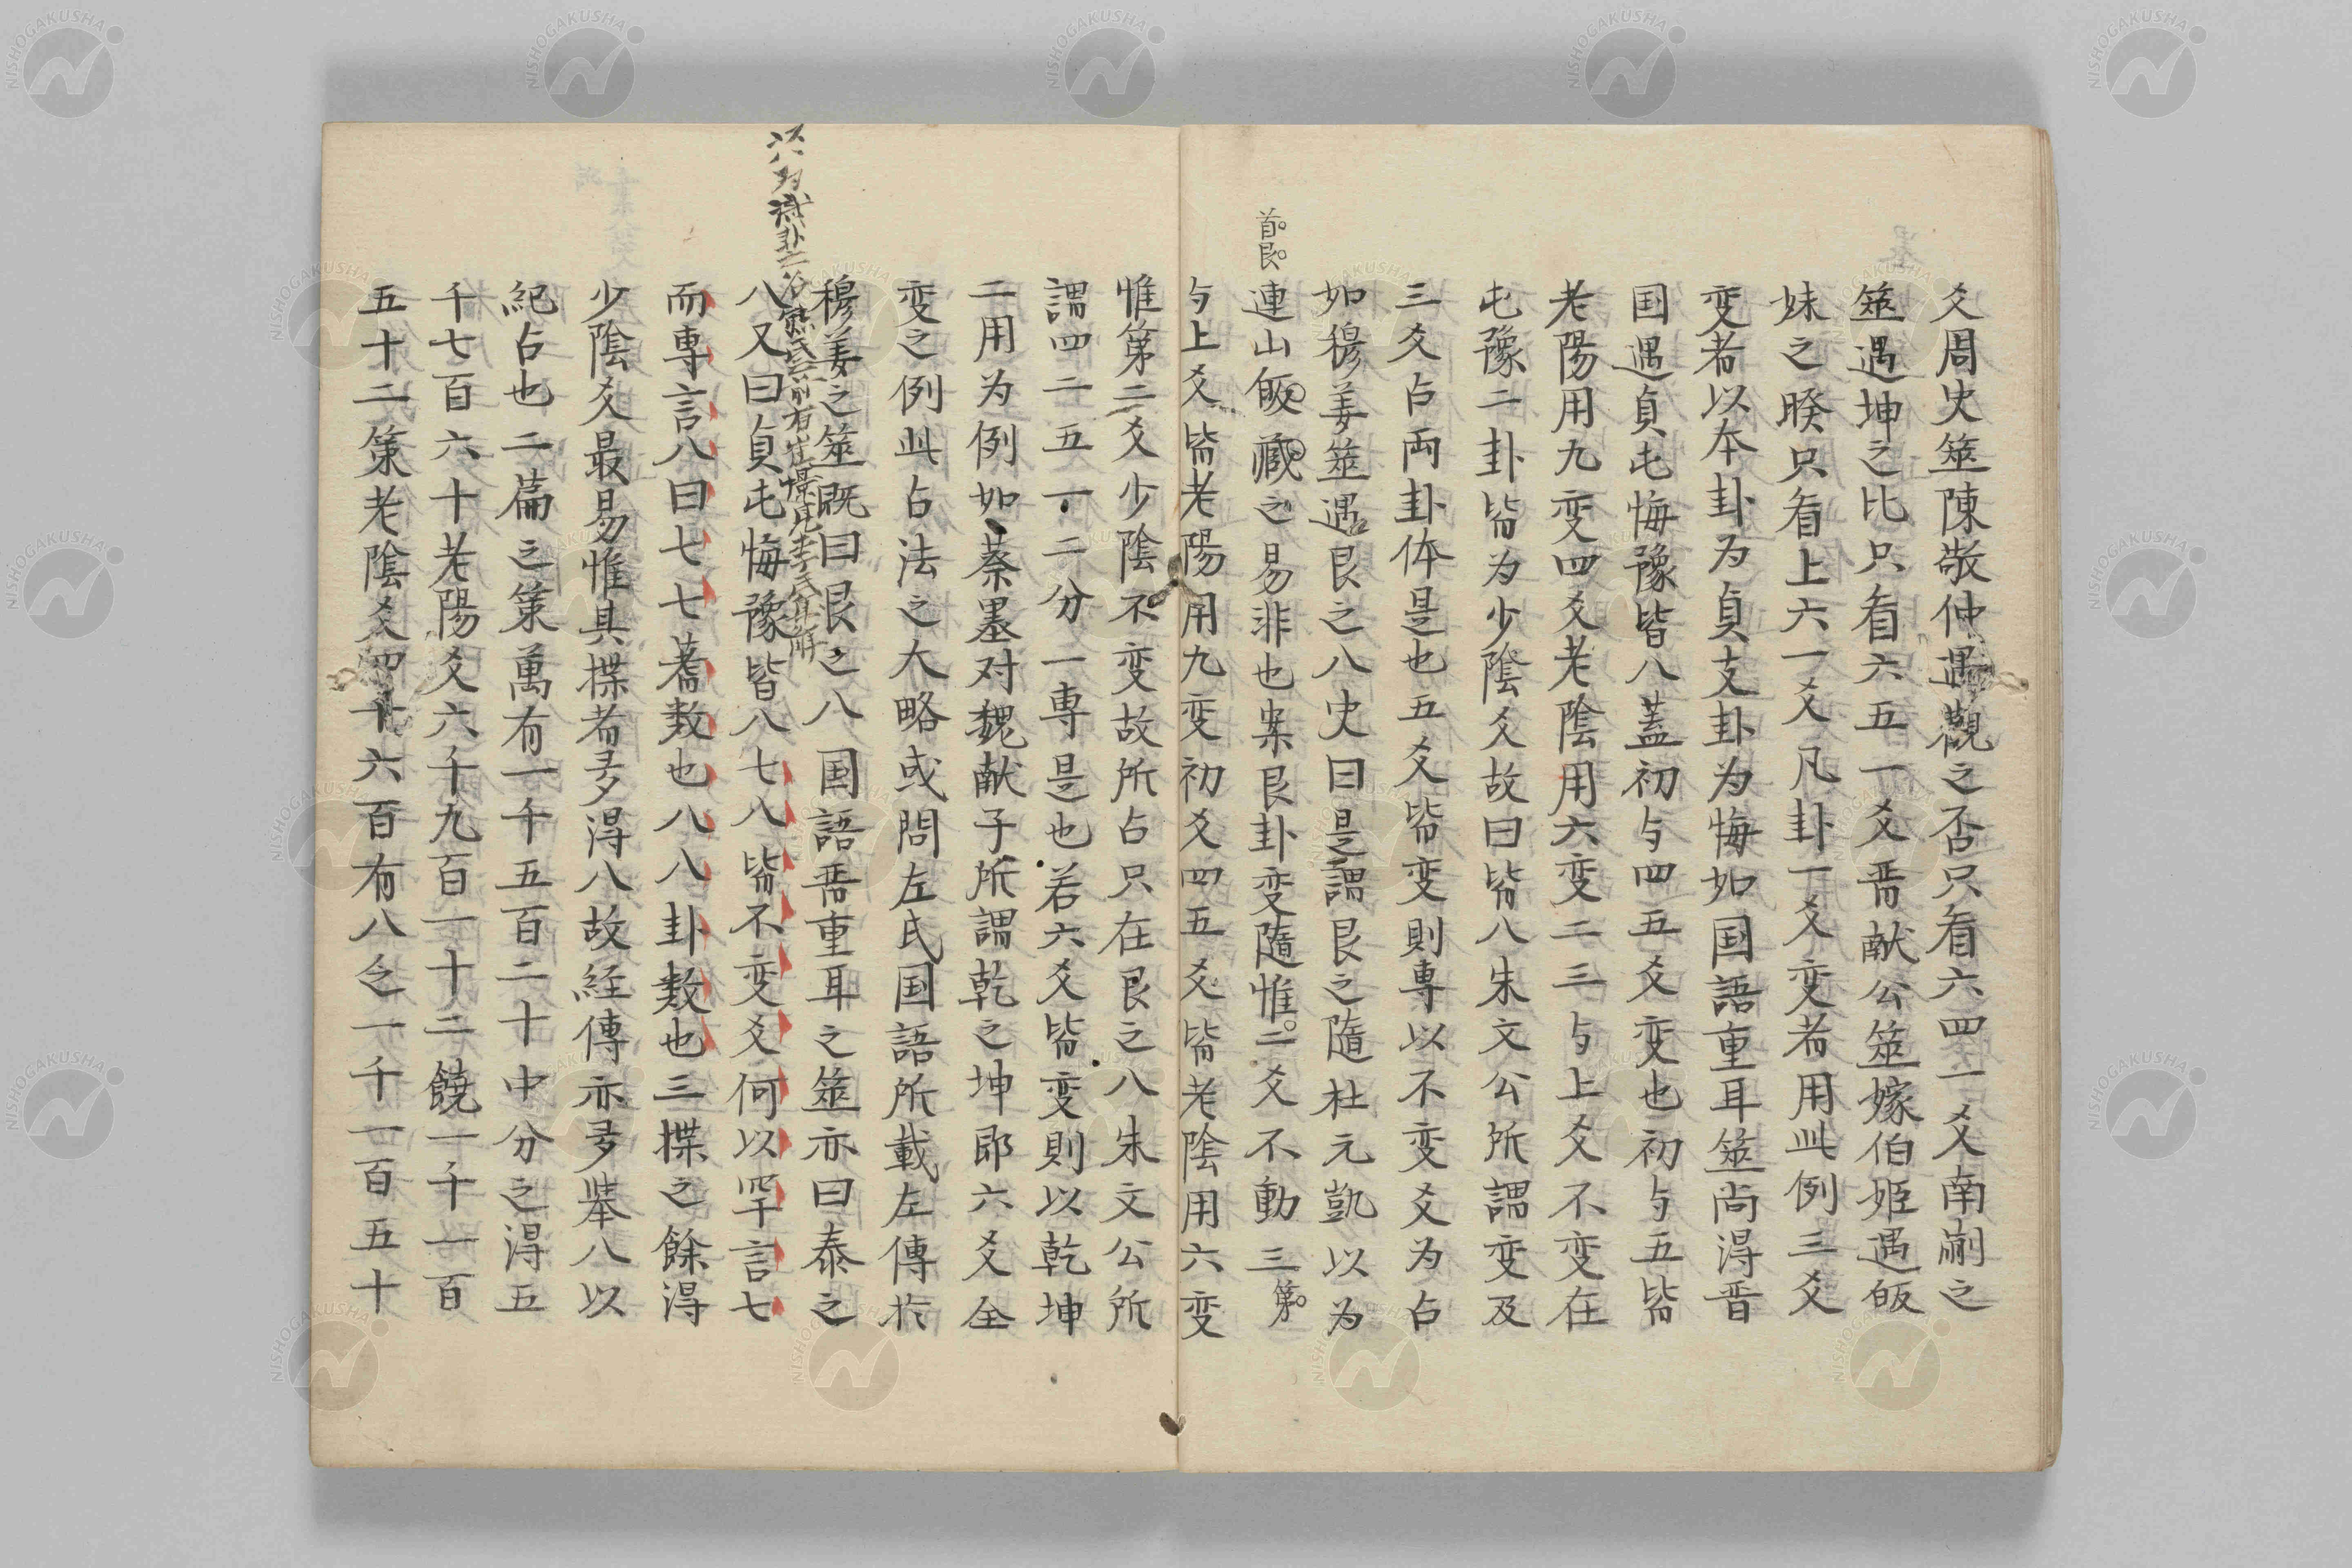 爻周史筮陳敬仲遇觀之否只看六四一爻南蒯之
筮遇坤之比只看六五一爻晋献公筮嫁伯姬遇皈
妹之睽只看上六一爻凡卦一爻変者用此例三爻
変者以本卦为貞支卦为悔如国語重耳筮尚淂晋
国遇貞屯悔豫皆八蓋初与四五爻変也初与五皆
老陽用九変四爻老陰用六変二三与上爻不変在
屯豫二卦皆为少陰爻故曰皆八朱文公所謂変及
三爻占両卦体是也五爻皆変則専以不変爻为占
如穆姜筮遇艮之八史曰是謂艮之隨杜元凱以为
首艮
連山皈藏之易非也案艮卦変隨惟二爻不動三第
与上爻皆老陽用九変初爻四五爻皆老陰用六変
惟第二爻少陰不変故所占只在艮之八朱文公所
謂四二五一二分一専是也若六爻皆変則以乾坤
二用为例如蔡墨対魏献子所謂乾之坤即六爻全
変之例此占法之大略或問左氏国語所載左傳於
穆姜之筮既曰艮之八国語晋重耳之筮亦曰泰之
八又曰貞屯悔豫皆八七八皆不変爻何以罕言七
而専言八曰七七蓍数也八八卦数也三揲之餘淂
少陰爻最易惟其揲者多淂八故経傳亦多举八以
紀占也二篇之策萬有一千五百二十中分之淂五
千七百六十老陽爻六千九百一十二饒一千一百
五十二策老陰爻四千六百有八乏一千一百五十